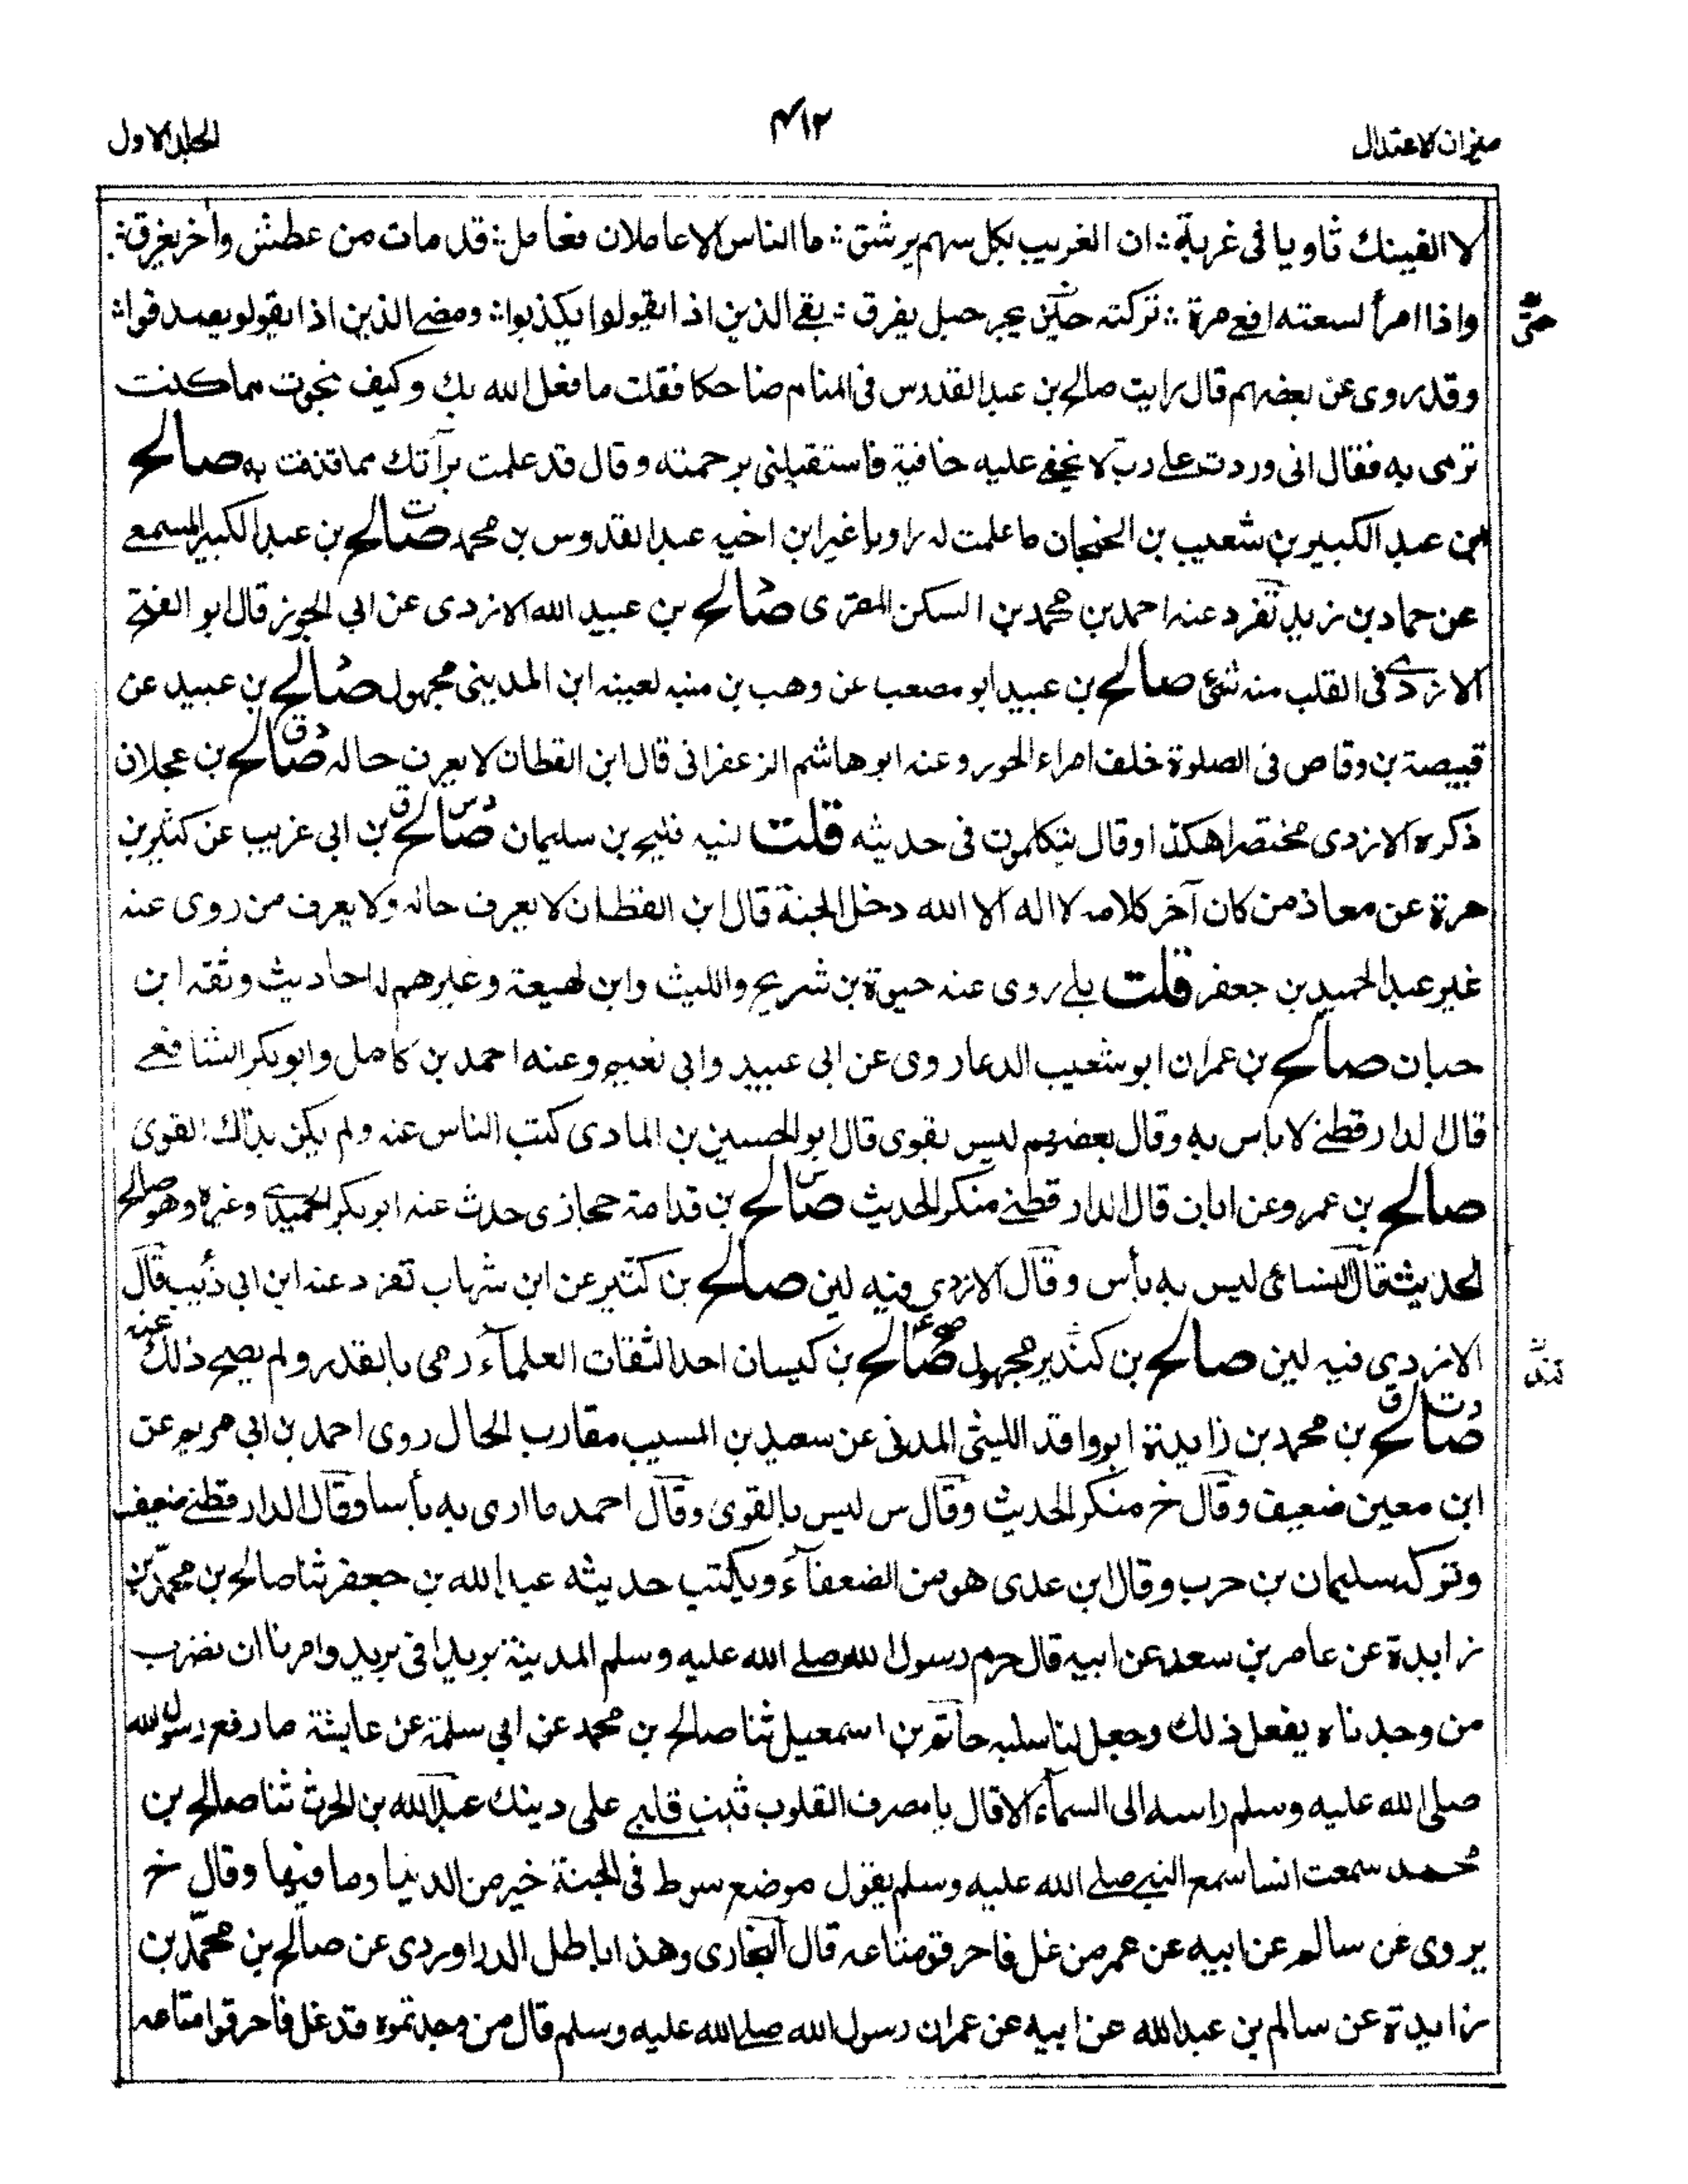 ميزان الاعتدال
٤١٢
الجلد الاول
لا الفينك ثاويا فى غربة ان الغريب بكل سهم يرشق ما الناس الا عاملان فعامل قد مات من عطش وآخر يغرق
واذا امرأ لسعته افعى مرة تركته حين يجر حبل يفرق بقى الذين اذا يقولوا يكذبوا ومضى الذين اذا يقولو يصدقوا
حتى
وقد روى عن بعضهم قال رايت صالح بن عبد القدوس فى المنام ضاحكا فقلت ما فعل الله بك وكيف نجوت مما كنت
ترمى به فقال انى وردت على رب لا يخفى عليه خافية فاستقبلنى برحمته وقال قد علمت برآتك مما قذفت به صالح
بن عبد الكبير بن شعيب بن الحبحاب ما علمت له راويا غير ابن اخيه عبد القدوس بن محمد ت صالح بن عبد الكبير المسمعى
عن حماد بن زيد تفرد عنه احمد بن محمد بن السكن المقرى صالح بن عبيد الله الازدى عن ابي الجوز قال ابو الفتح
الازدى فى القلب منه شئ صالح بن عبيد ابو مصعب عن وهب بن منبه لعينه ابن المدينى مجهول د صالح بن عبيد عن
قبيصة بن وقاص فى الصلوة خلف امراء الجور وعنه ابو هاشم الزعفرانى قال ابن القطان لا يعرف حاله د ق صالح بن عجلان
ذكره الازدى مختصرا هكذا وقال يتكلمون فى حديثه قلت لنيه فليح بن سليمان د س ق صالح بن ابى عريب عن كثير بن
مرة عن معاذ من كان آخر كلامه لا اله الا الله دخل الجنة قال ابن القطان لا يعرف حاله ولا يعرف من روى عنه
غير عبد الحميد بن جعفر قلت بلى روى عنه حيوة بن شريح والليث وابن لهيعة وغيرهم له احاديث وثقه ابن
حبان صالح بن عمران ابو شعيب الدعا روى عن ابى عبيد وابي نعيم وعنه احمد بن كامل وابو بكر الشافعى
قال الدارقطنى لا باس به وقال بعضهم ليس بقوى قال ابو الحسين بن المادى كتب الناس عنه ولم يكن بذاك القوى
صالح بن عمرو عن ابان قال الدارقطنى منكر الحديث س صالح بن قدامة حجازى حدث عنه ابو بكر الحميدى وغيره وهو صالح
الحديث قال النسائى ليس به بأس وقال الازدى فيه لين صالح بن كثير عن ابن شهاب تفرد عنه ابن ابى ذئيب قال
الازدى فيه لين صالح بن كندير مجهول صح ع صالح بن كيسان احد الثقات العلمآء رمى بالقدر ولم يصح ذلك عنه
د ت ق صالح بن محمد بن زايدة ابو واقد الليثى المدنى عن سعيد بن المسيب مقارب الحال روى احمد بن ابى مريم عن
ابن معين ضعيف وقال خ منكر الحديث وقال س ليس بالقوى وقال احمد ما ارى به بأسا وقال الدارقطنى ضعيف
وتركه سليمان بن حرب وقال ابن عدى هو من الضعفآء ويكتب حديثه عبد الله بن جعفر ثنا صالح بن محمد بن
زايدة عن عامر بن سعد عن ابيه قال حرم رسول الله صلى الله عليه وسلم المدينة بريدا فى بريد وامرنا ان نضرب
من وجدناه يفعل ذلك وجعل لنا سلبه حاتم بن اسمعيل ثنا صالح بن محمد عن ابي سلمة عن عايشة ما رفع رسول الله
صلى الله عليه وسلم راسه الى السمآء الا قال يا مصرف القلوب ثبت قلبى على دينك عبد الله بن الحرث ثنا صالح بن
محمد سمعت انسا سمع النبى صلى الله عليه وسلم يقول موضع سوط فى الجنة خير من الدنيا وما فيها وقال خ
يروى عن سالم عن ابيه عن عمر من غل فاحرقو متاعه قال البخارى وهذا باطل الدراوردى عن صالح بن محمد بن
زايدة عن سالم بن عبد الله عن ابيه عن عمران رسول الله صلى الله عليه وسلم قال من وجدتموه قد غل فاحرقوا متاعه